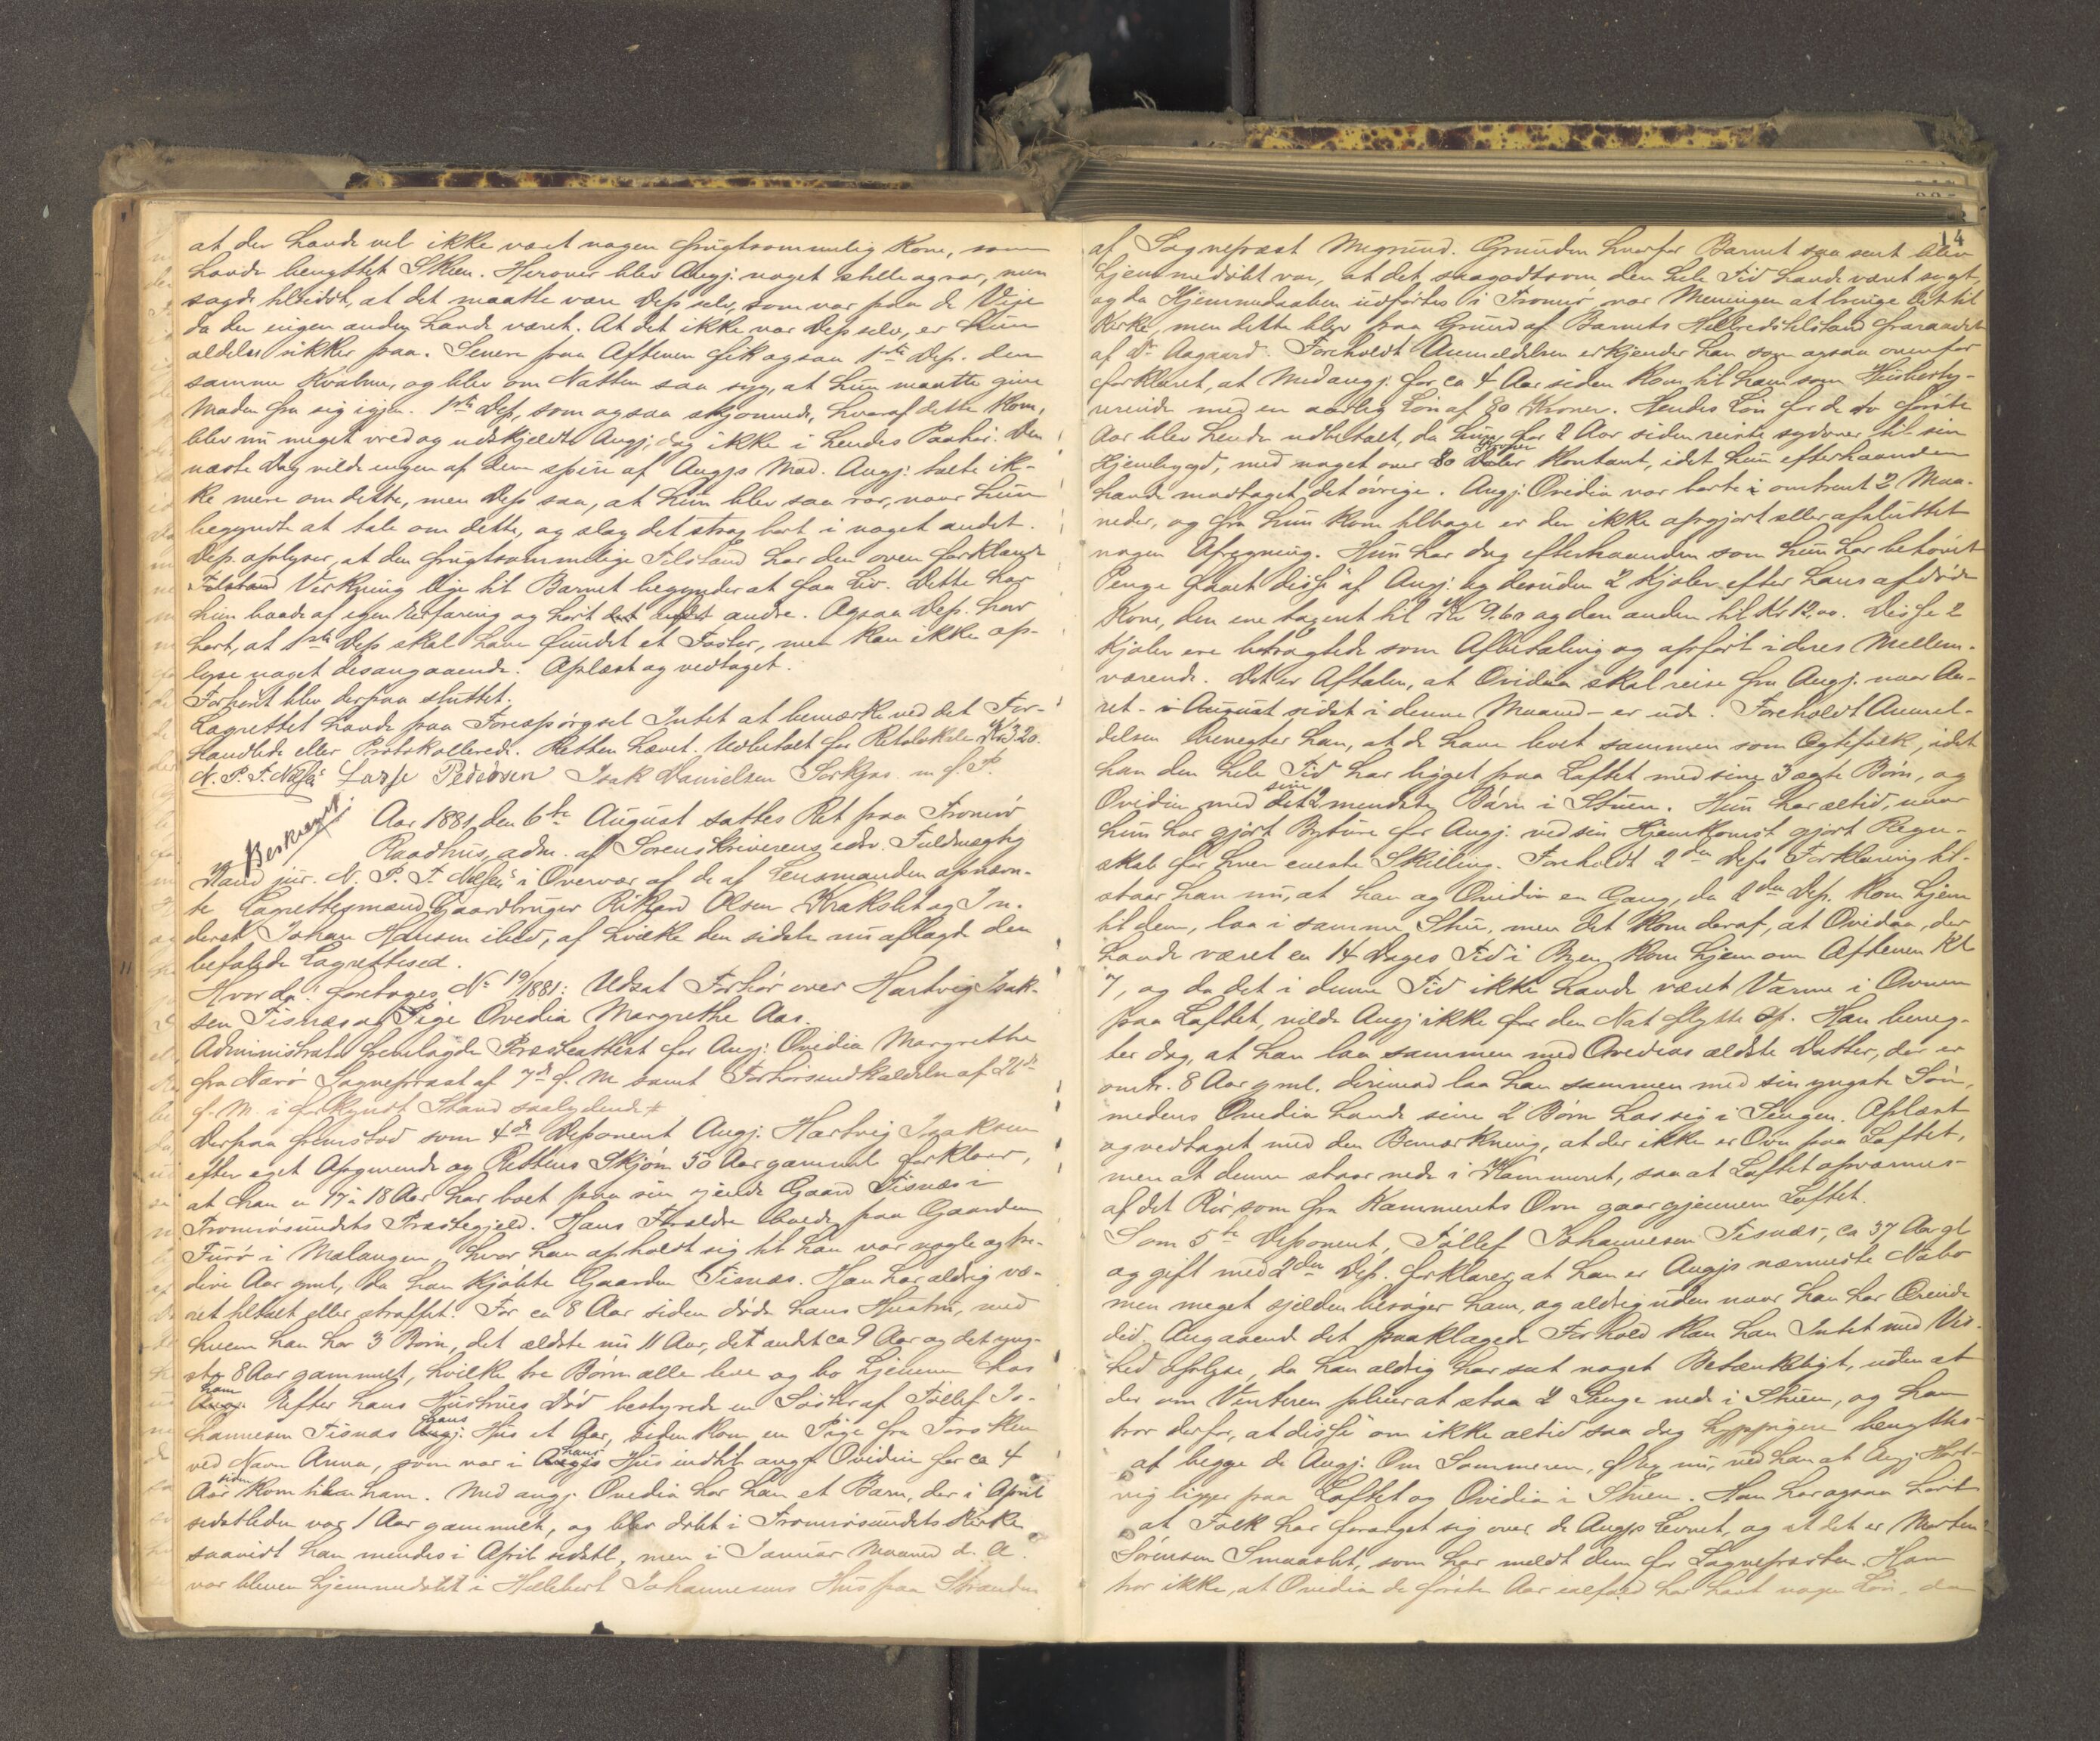 at der havde vel ikke været nogen frugtsommelig Kone, som
havde benyttet Skeen. Herover blev Angj. noget stille og rar, men
sagde tilsidst, at det maatte være Dep. selv, som var paa de Veje
da der ingen anden havde været. At det ikke var Dep selv, er hun
aldeles sikker paa. Senere paa Aftenen fik ogsaa 1ste Dep. den
samme Kvalme, og blev om Natten saa syg, at hun maatte give
Maden fra sig igjen. 1ste Dep, som ogsaa skjønnede, hvoraf dette kom,
blev nu meget vred og udskjeldte Angj, dog ikke i hendes Paahør. Den
næste Dag vilde ingen af dem spise af Angjs Mad. Angj: talte ik-
ke mere om dette, men Dep saa, at hun blev saa rar, naar hun
begyndte at tale om dette, og slog det strax bort i noget andet.
Dep. oplyser, at den frugtsommelige Tilstand har den oven forklarede
Tilstand Virkning lige til Barnet begynder at faa Liv. Dette har
hun baade af egen Erfaring og hørt det andre. Ogsaa Dep. har
hørt, at 1ste Dep skal have fundet et Foster, men kan ikke op-
lyse noget desangaaende. Oplæst og vedtaget.
Forhøret blev derpaa sluttet.
Lagrettet havde paa Forespørgsel Intet at bemærke ved det For-
handlede eller Protokollerede. Retten hævet. Udbetalt for Retslokale Kr 3.20.
N. P. F. Lasse Pedersen Isak Danielsen m. f. P.
Beskrevet
Aar 1881, den 6te August sattes Ret paa Tromsø
Raadhus, adm. af Sorenskriverens edsv. Fuldmægtig
Kand jur. N. P. F. i Overvær af de af Lensmanden opnævn-
te Lagrettesmænd Gaardbruger Rikard Olsen Krakslet og In-
derst Johan Hansen ibid, af hvilke den sidste nu aflagde den
befalede Lagretteseed.
Hvor da: foretoges No 19/1881: Udsat Forhør over Hartvig Isak-
sen Tisnæs og Pige Ovedia Margrethe Aas.
Administrator fremlagde Præsteattest for Angj: Ovidia Margrethe
fra Nærø Sognepræst af 7de f. M samt Forhørsindkaldelse af 26de
f. M. i forkyndt Stand saalydende #
Derpaa fremstod som 4de Deponent Angj. Hartvig Isaksen
efter eget Opgivende og Rettens Skjøn 50 Aar gammel forklarer,
at han i 17 à 18 Aar har boet paa sin ejende Gaard Tisnæs i
Tromsøsundets Præstegjeld. Hans Forældre boede paa Gaarden
Furø i Malangen, hvor han opholdt sig til han var nogle og tre-
dive Aar gml, da han kjøbte Gaarden Tisnæs. Han har aldrig væ-
ret tiltalt eller straffet. For ca 8 Aar siden døde hans Hustru, med
hvem han har 3 Børn, det ældste nu 11 Aar, det andet ca 9 Aar og det yng-
ste 8 Aar gammelt, hvilke tre Børn alle leve og bo hjemme hos
ham
Angj. Efter hans Hustrues Død bestyrede en Søster af Tollef Jo-
hans
hannesen Tisnæs Angj: Hus et Aar, siden kom en Pige fra Torsken
hans
ved Navn Anna, som var i Angjs Hus indtil angj Ovidia for ca 4
siden
Aar kom til ham. Med angj. Ovedia har han et Barn, der i April
sidstleden var 1 Aar gammelt, og blev døbt i Tromsøsundets Kirke
saavidt han mindes i April sidstl, men i Januar Maaned d. A.
var bleven hjemmedøbt i Hellebert Johannesens Hus paa Stranden
14
af Sognepræst Megrund. Grunden hvorfor Barnet saa sent blev
hjemmedøbt var, at det saagodtsom den hele Tid havde været sygt,
og da Hjemmedaaben udførtes i Tromsø, var Meningen at bringe det til
Kirke, men dette blev paa Grund af Barnets Helbredstilstand fraraadet
af Dr Aagaard. Foreholdt Anmeldelsen erkjender han som ogsaa ovenfor
forklaret, at Medangj. for ca 4 Aar siden kom til ham som Husbesty-
rerinde med en aarlig Løn af 80 Kroner. Hendes Løn for de to første
Aar blev hende udbetalt, da hun for 2 Aar siden reiste sydover til sin
Kroner
Hjembygd, med noget over 80 Daler kontant, idet hun efterhaanden
havde modtaget det øvrige. Angj. Ovidia var borte i omtrent 2 Maa-
neder, og fra hun kom tilbage er der ikke opgjort eller afsluttet
nogen Afregning. Hun har dog efterhaanden som hun har behøvet
Penge faaet disse af Angj: og desuden 2 Kjoler efter hans afdøde
Kone, den ene taxeret til Kr 9,60 og den anden til Kr 12,00. Disse 2
Kjoler ere betragtede som Afbetaling og opført i deres Mellem-
værende. Det er Aftalen, at Ovidia skal reise fra Angj. naar Aa-
ret - i August sidst i denne Maaned - er ude. Foreholdt Anmel-
delsen benegter han, at de have levet sammen som Ægtefolk, idet
han den hele Tid har ligget paa Loftet med sine 3 ægte Børn, og
sine
Ovidia med det 2 mindste Børn i Stuen. Hun har altid, naar
hun har gjort Byture for Angj. ved sin Hjemkomst gjort Regn-
skab for hver eneste Skilling. Foreholdt 2den Deps Forklaring til-
staar han nu, at han og Ovidia en Gang, da 2den Dep. kom hjem
til dem, laa i samme Stue, men det kom deraf, at Ovidia, der
havde været en 14 Dages Tid i Byen kom hjem om Aftenen Kl
7, og da det i denne Tid ikke havde været Varme i Ovnen
paa Loftet, vilde Angj ikke for den Nat flytte op. Han beneg-
ter dog, at han laa sammen med Ovedias ældste Datter, der er
omtr. 8 Aar gml. derimod laa han sammen med sin yngste Søn,
medens Ovedia havde sine 2 Børn hos sig i Sengen. Oplæst
og vedtaget med den Bemærkning, at der ikke er Ovn paa Loftet,
men at denne staar nede i Kammeret, saa at Loftet opvarmes
af det Rør, som fra Kammerets Ovn gaar gjennem Loftet.
Som 5te Deponent, Tollef Johannesen Tisnæs, ca 37 Aar gl
og gift med 2den Dep. forklarer, at han er Angjs nærmeste Nabo
men meget sjelden besøger ham, og aldrig uden naar han har Ærinde
did. Angaaende det paaklagede Forhold kan han Intet med Vis-
hed oplyse, da han aldrig har set noget Betænkeligt, uden at
der om Vinteren pleier at staa 2 Senge nede i Stuen, og han
tror derfor, at disse om ikke altid saa dog hyppigere benyttes
af begge de Angj. Om Sommeren, ogsaa nu, ved han at Angj Hart-
vig ligger paa Loftet og Ovidia i Stuen. Han har ogsaa hørt
at Folk har forarget sig over de Angjs Levnet, og at det er Morten
Sørensen Smaaslet, som har meldt dem for Sognepræsten. Han
tror ikke, at Ovidia de første Aar ialfald har havt nogen Løn, da